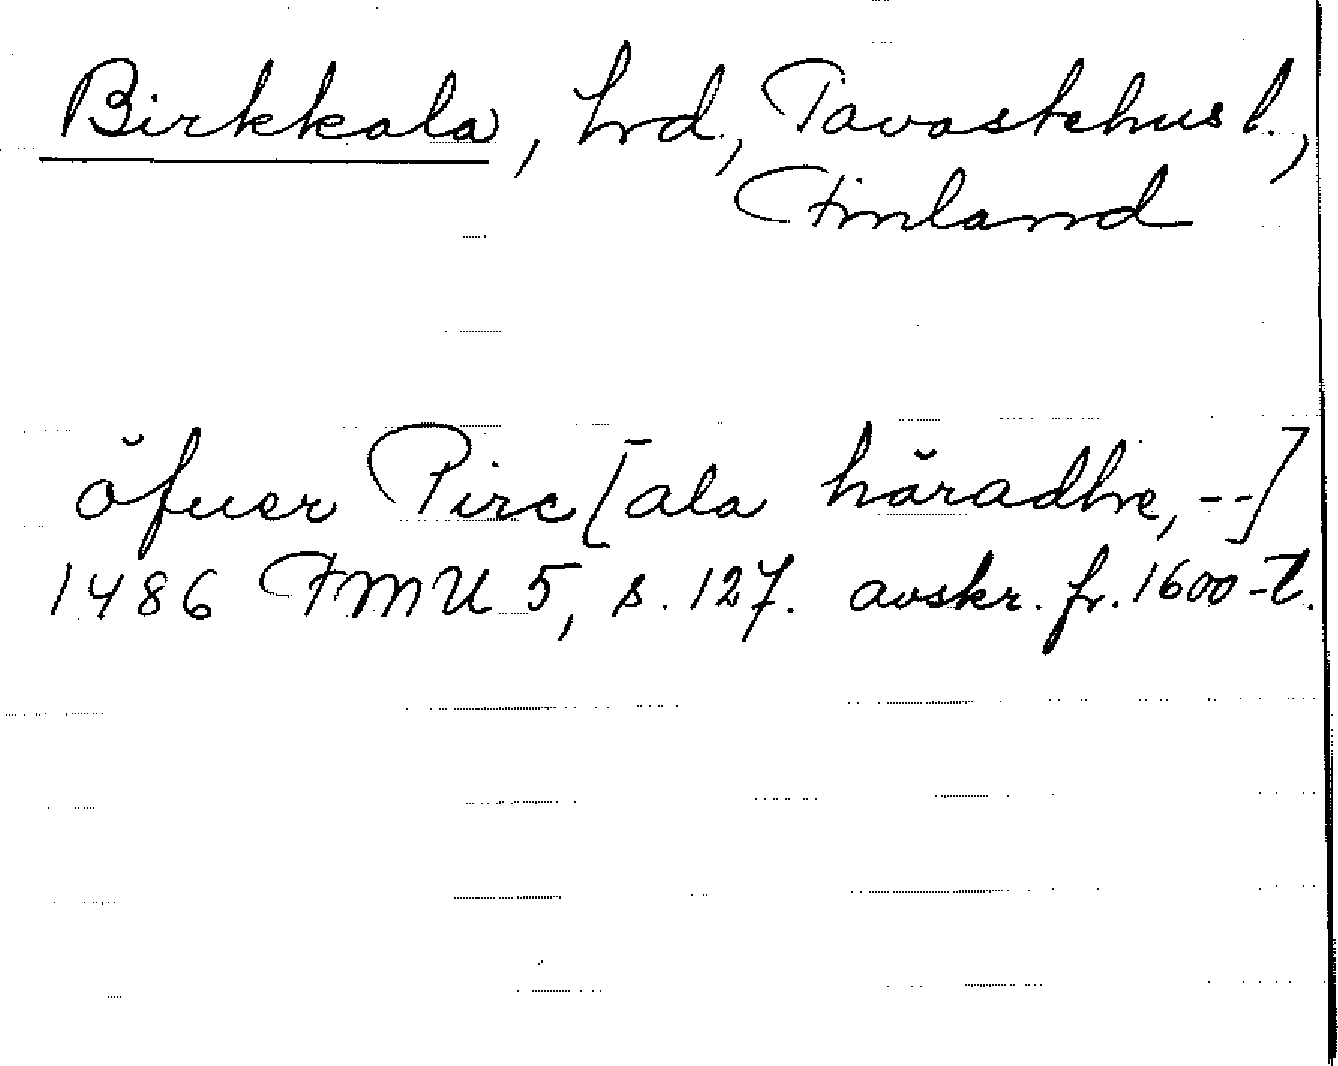 Birkkala, hrd., Tavastehus l.,
Finland
öfuer Pirc[ala häradhe, --]
1486 FMU 5, s. 127. avskr. fr. 1600-t.